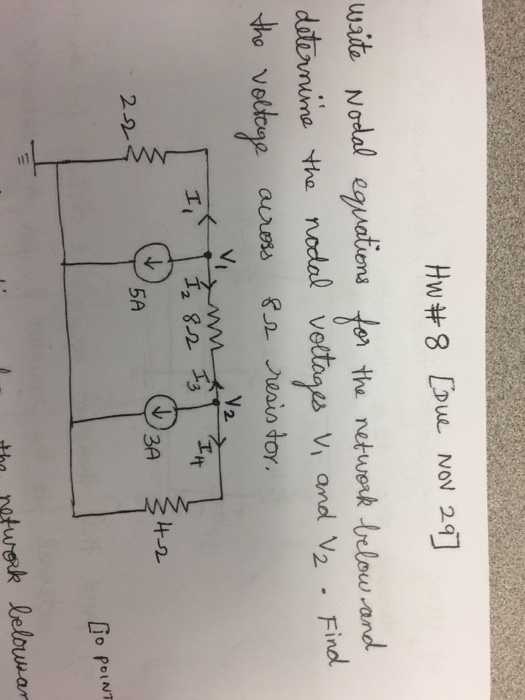 HW # 8 [Due NOV 29]
Write Nodal equations for the network below and
determine the nodal voltages V1 and V2 . Find
the voltage across 8Ω resistor.
V1 V2
I1 I2 8Ω I3 I4
2Ω 5A 3A 4Ω
[10 POINT
the network below an